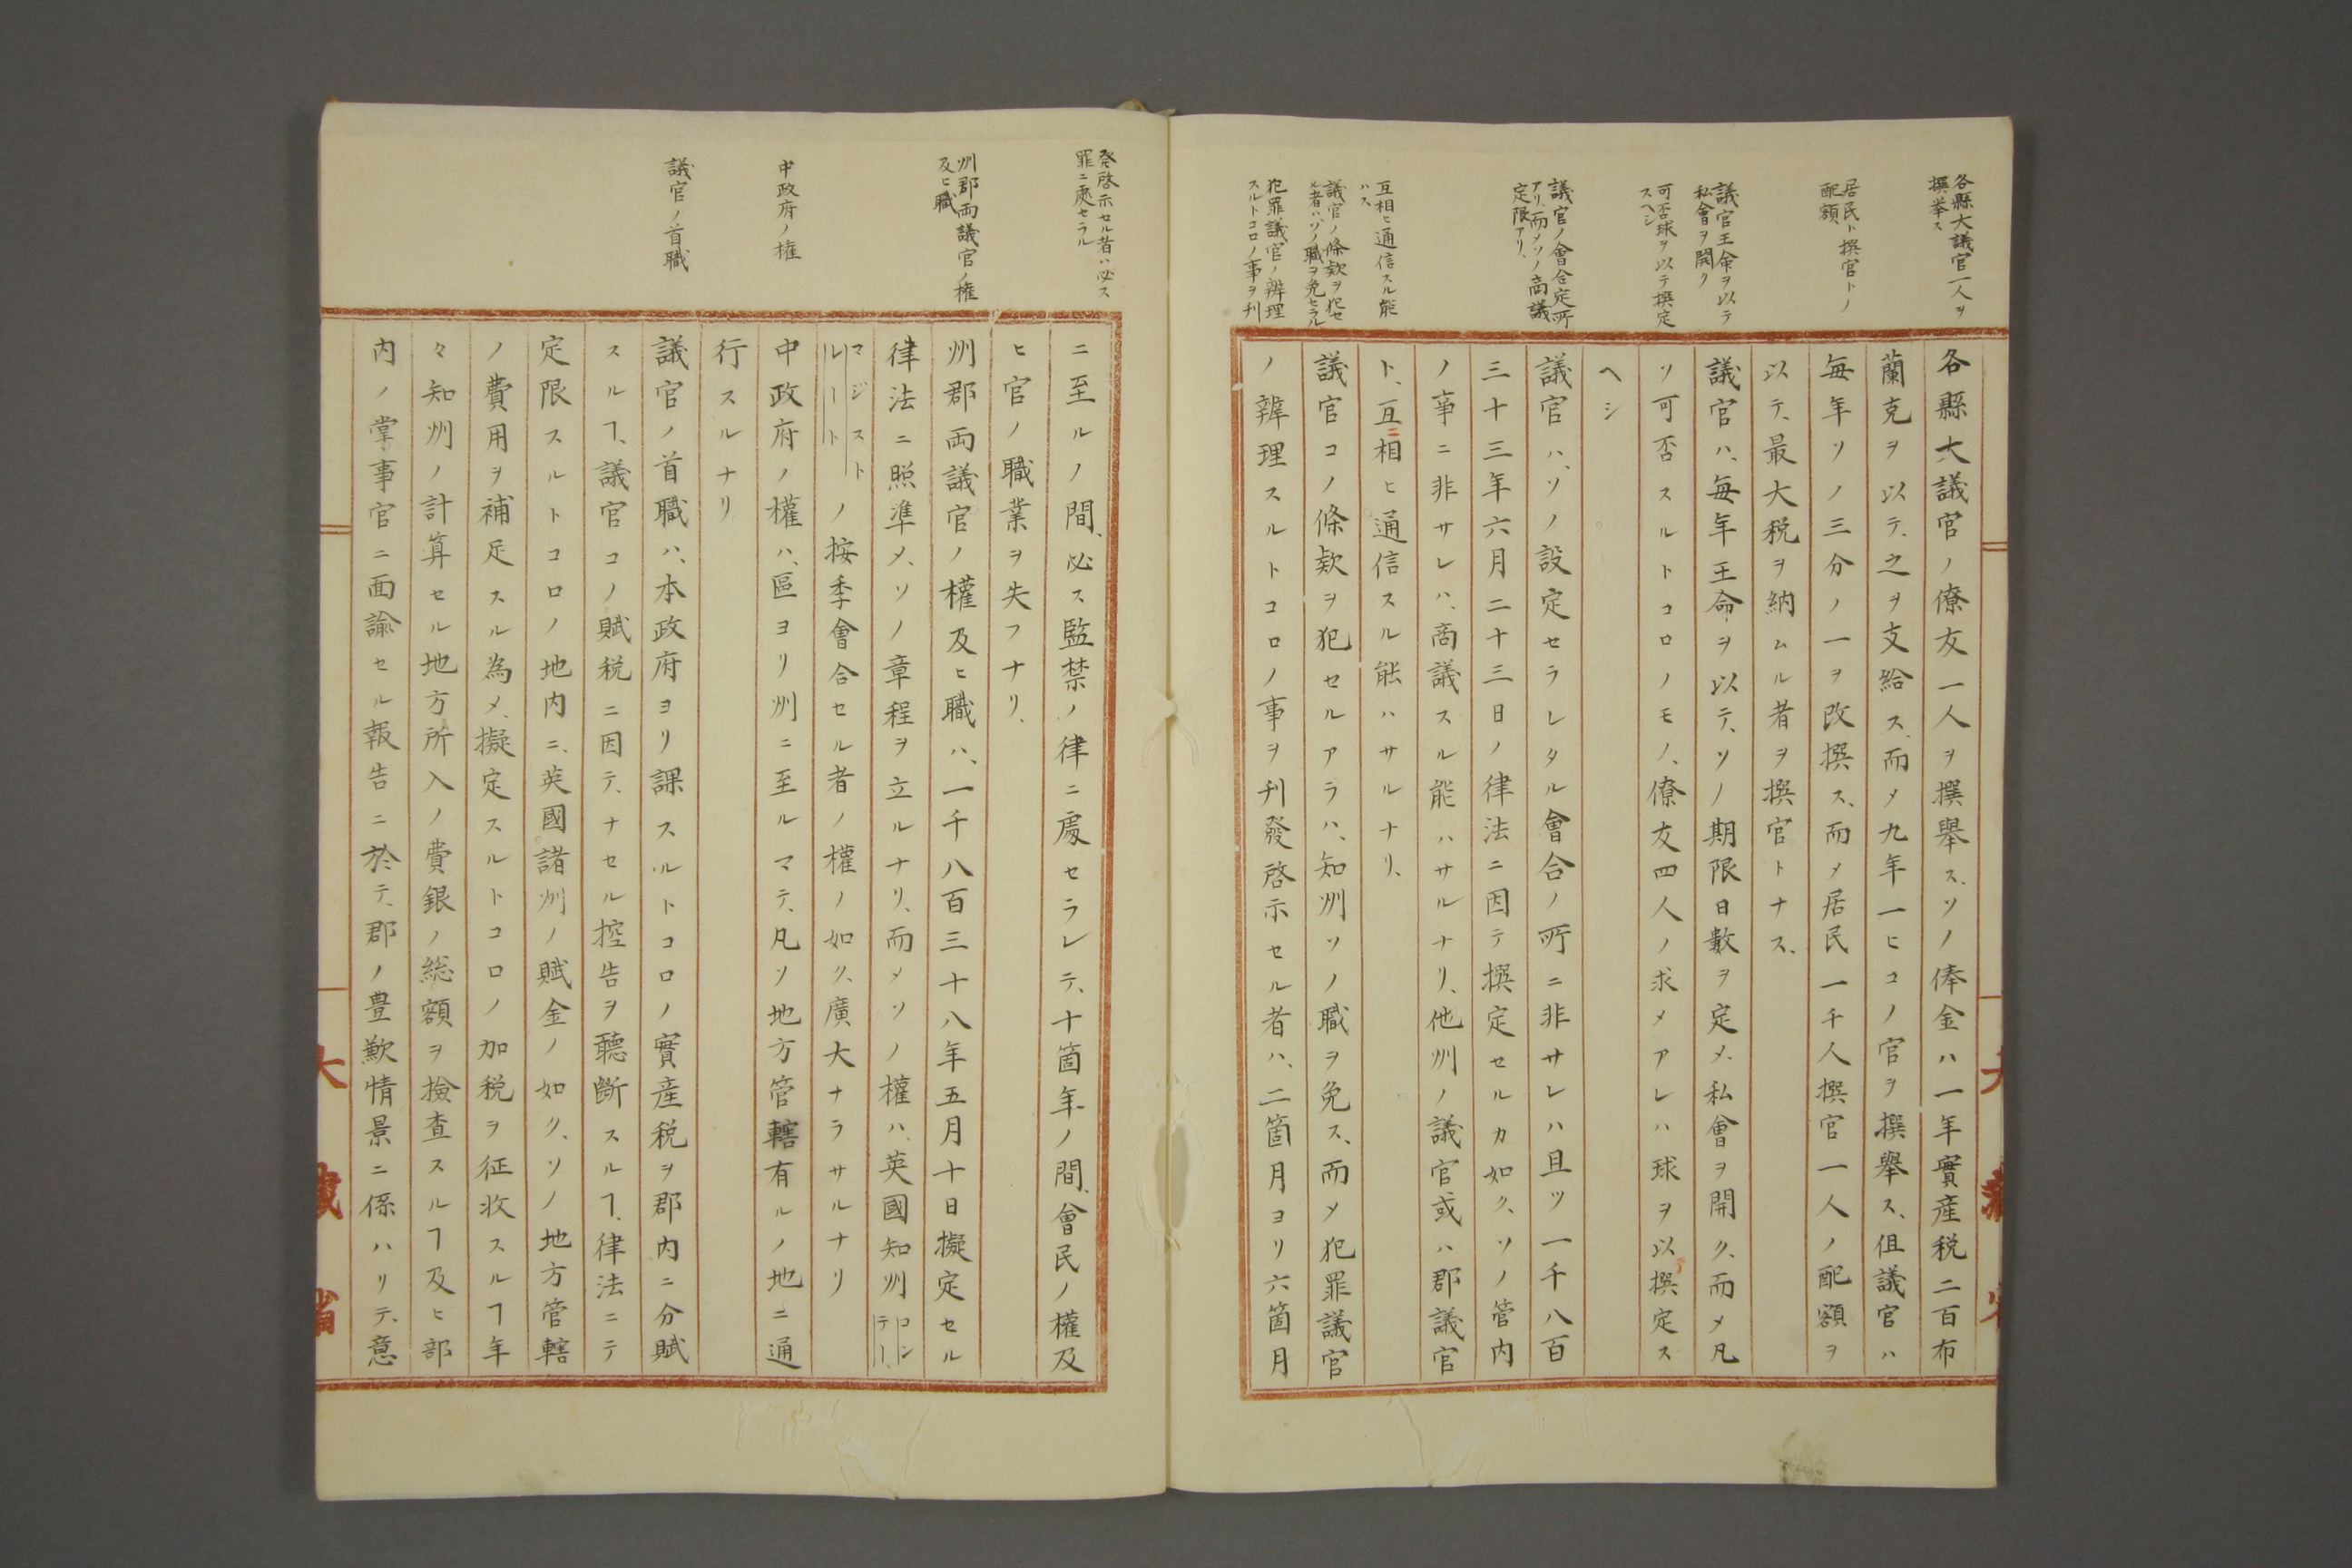 各縣大議官一人ヲ
撰挙ス
居民ト撰官トノ
配額
議官王命ヲ以テ
私會ヲ開ク
可否球ヲ以テ撰定
スヘシ
議官ノ會合定所
アリ、而メソノ商議
定限アリ、
互相ヒ通信スル能
ハス
議官ノ條欵ヲ犯セ
ル者ハ、ソノ職ヲ免セラル
犯罪議官ノ辨理
スルトコロノ事ヲ刊
各縣大議官ノ僚友一人ヲ撰舉ス、ソノ俸金ハ一年實産税二百布
蘭克ヲ以テ、之ヲ支給ス、而メ九年一ヒコノ官ヲ撰舉ス、伹議官ハ
毎年ソノ三分ノ一ヲ改撰ス、而メ居民一千人撰官一人ノ配額ヲ
以テ、最大税ヲ納ムル者ヲ撰官トナス、
議官ハ、毎年王命ヲ以テ、ソノ期限日數ヲ定メ、私會ヲ開ク、而メ凡
ソ可否スルトコロノモノ、僚友四人ノ求メアレハ球ヲ以撰定ス
ヘシ
議官ハ、ソノ設定セラレタル會合ノ所ニ非サレハ且ツ一千八百
三十三年六月二十三日ノ律法ニ因テ撰定セルカ如ク、ソノ管内
ノ事ニ非サレハ、商議スル能ハサルナリ、他州ノ議官或ハ郡議官
ト、互ニ相ヒ通信スル能ハサルナリ、
議官コノ條欵ヲ犯セルアラハ、知州ソノ職ヲ免ス、而メ犯罪議官
ノ辨理スルトコロノ事ヲ刊發啓示セル者ハ、二箇月ヨリ六箇月
大藏省
発啓示セル者ハ必ス
罪ニ處セラル
州郡両議官ノ權
及ヒ職
中政府ノ權
議官ノ首職
ニ至ルノ間、必ス監禁ノ律ニ處セラレテ、十箇年ノ間、會民ノ權及
ヒ官ノ職業ヲ失フナリ、
州郡両議官ノ權及ヒ職ハ、一千八百三十八年五月十日擬定セル
律法ニ照準メ、ソノ章程ヲ立ルナリ、而メソノ權ハ、英國知州コンテー、
マジストルート、ノ按季會合セル者ノ權ノ如ク、廣大ナラサルナリ
中政府ノ權ハ、區ヨリ州ニ至ルマテ、凡ソ地方管轄有ルノ地ニ通
行スルナリ
議官ノ首職ハ、本政府ヨリ課スルトコロノ實産税ヲ郡内ニ分賦
スルヿ、議官コノ賦税ニ因テ、ナセル控告ヲ聽斷スルヿ、律法ニテ
定限スルトコロノ地内ニ、英國諸州ノ賦金ノ如ク、ソノ地方管轄
ノ費用ヲ補足スル為メ、擬定スルトコロノ加税ヲ征收スルヿ年
々知州ノ計算セル地方所入ノ費銀ノ総額ヲ撿査スルヿ及ヒ部
内ノ掌事官ニ面諭セル報告ニ於テ、郡ノ豊歉情景ニ係ハリテ、意
大藏省